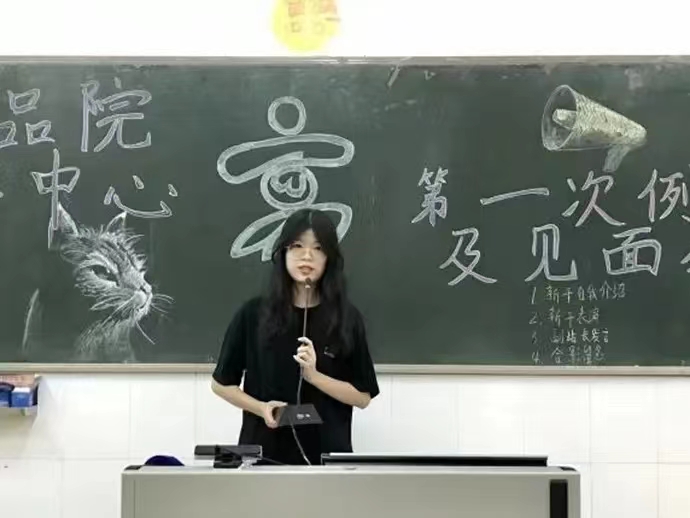 品院
中心
第一次例
及见面会
1. 新干自我介绍
2. 新干表演
3. 副站长发言
4. 合影留念